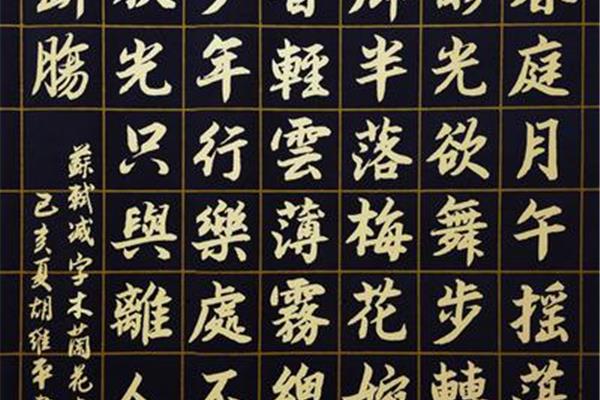 春庭月午搖
光欲舞步轉
半落梅花婉
香輕雲薄霧總
少年行樂處不
秋光只與離人
斷腸
蘇軾减字木蘭花
己亥夏胡維平